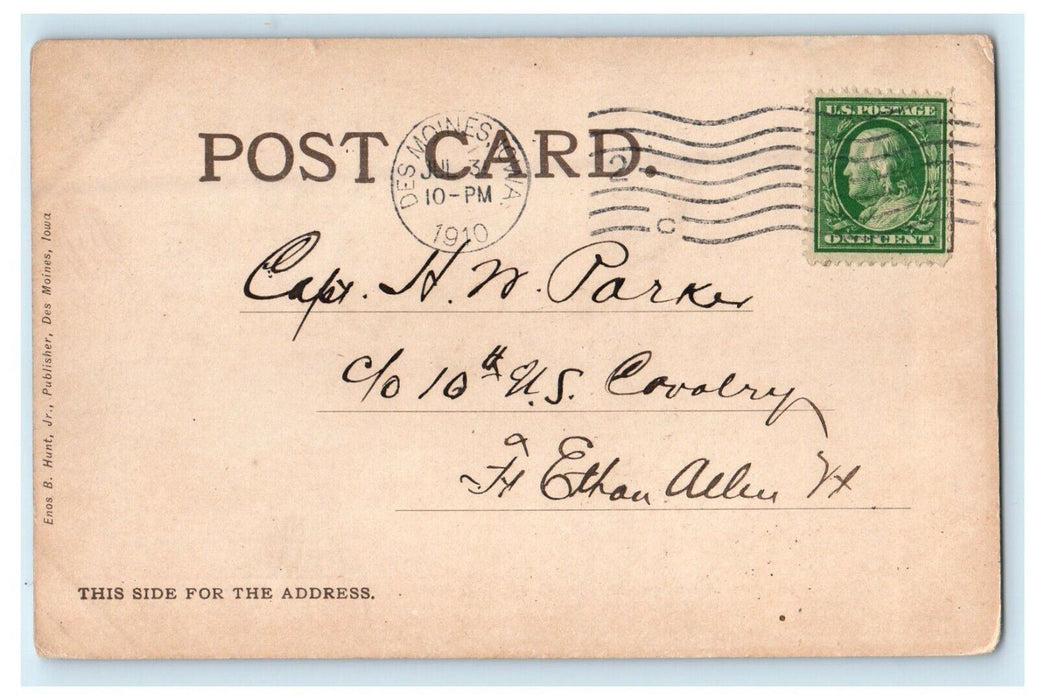 U.S. POSTAGE
ONE CENT
POST CARD.
DES MOINES, IOWA
JUL 3
10-PM
1910
2
C
Capt. H. W. Parker
c/o 10th U.S. Cavalry
Ft Ethan Allen Vt
Enos B. Hunt, Jr., Publisher, Des Moines, Iowa
THIS SIDE FOR THE ADDRESS.